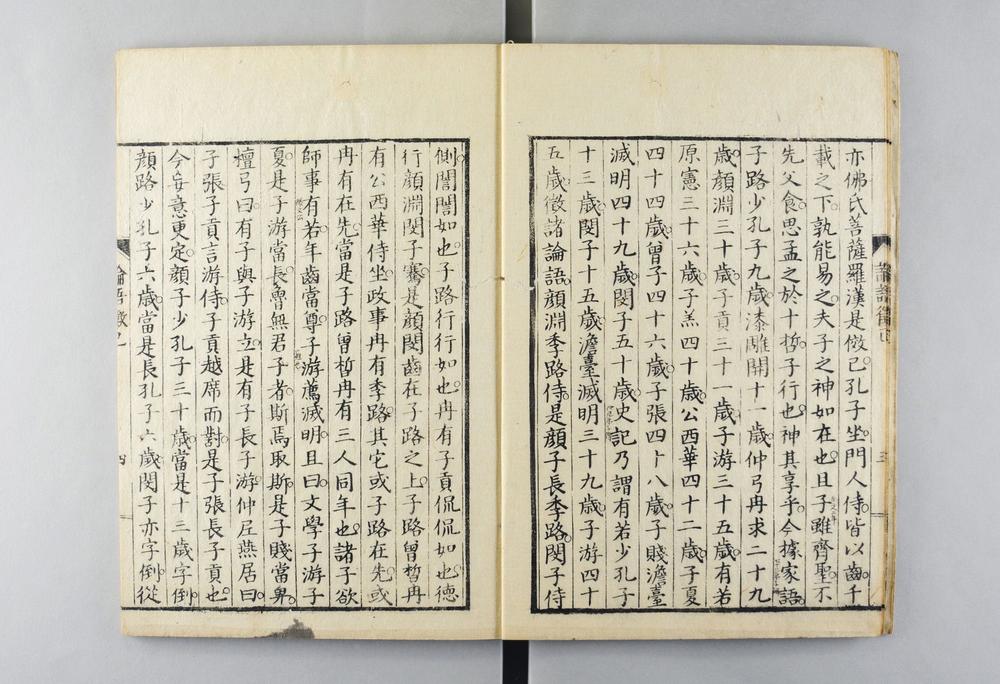 亦佛氏菩薩羅漢是傚已孔子坐門人侍皆以齒千
載之下孰能易之夫子之神如在也且子雖齊聖不
先父食思孟之於十哲子行也神其享乎今據家語
子路少孔子九歲漆雕開十一歲仲弓冉求二十九
歲顏淵三十歲子貢三十一歲子游三十五歲有若
原憲三十六歲子羔四十歲公西華四十二歲子夏
四十四歲曾子四十六歲子張四十八歲子賤澹臺
滅明四十九歲閔子五十歲史記乃謂有若少孔子
十三歲閔子十五歲澹臺滅明三十九歲子游四十
五歲徵諸論語顏淵季路侍是顏子長季路閔子侍
側誾誾如也子路行行如也冉有子貢侃侃如也德
行顏淵閔子騫是顏閔齒在子路之上子路曾晳冉
有公西華侍坐政事冉有季路其它或子路在先或
冉有在先當是子路曾晳冉有三人同年也諸子欲
師事有若年齒當尊子游薦滅明且曰文學子游子
夏是子游當長魯無君子者斯焉取斯是子賤當畀
檀弓曰有子與子游立是有子長子游仲尼燕居曰
子張子貢言游侍子貢越席而對是子張長子貢也
今妄意更定顏子少孔子三十歲當是十三歲字倒
顏路少孔子六歲當是長孔子六歲閔子亦字倒從
論語徵
三
四